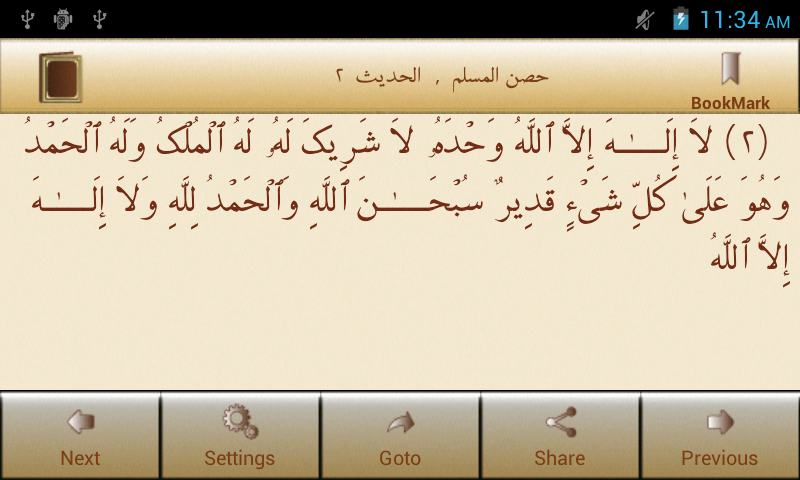 11:34 AM
حصن المسلم , الحديث ٢
BookMark
(٢) لاَ إِلَـــٰهَ إِلاَّ ٱللَّهُ وَحْدَهُۥ لاَ شَرِيكَ لَهُۥ لَهُ ٱلْمُلْكُ وَلَهُ ٱلْحَمْدُ
وَهُوَ عَلَىٰ كُلِّ شَىْءٍ قَدِيرٌ سُبْحَـــٰنَ ٱللَّهِ وَٱلْحَمْدُ لِلَّهِ وَلاَ إِلَـــٰهَ
إِلاَّ ٱللَّهُ
Next
Settings
Goto
Share
Previous